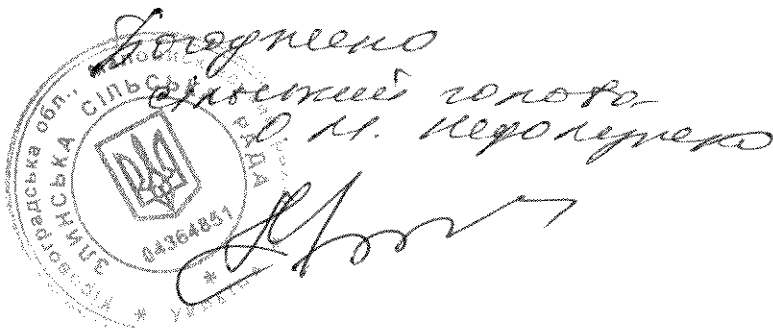 Погоджено
сільський голова
О М.
Кіровоградська обл., Маловисківський
ЗЛИНСЬКА СІЛЬСЬКА РАДА
04364851
* УКРАЇНА *